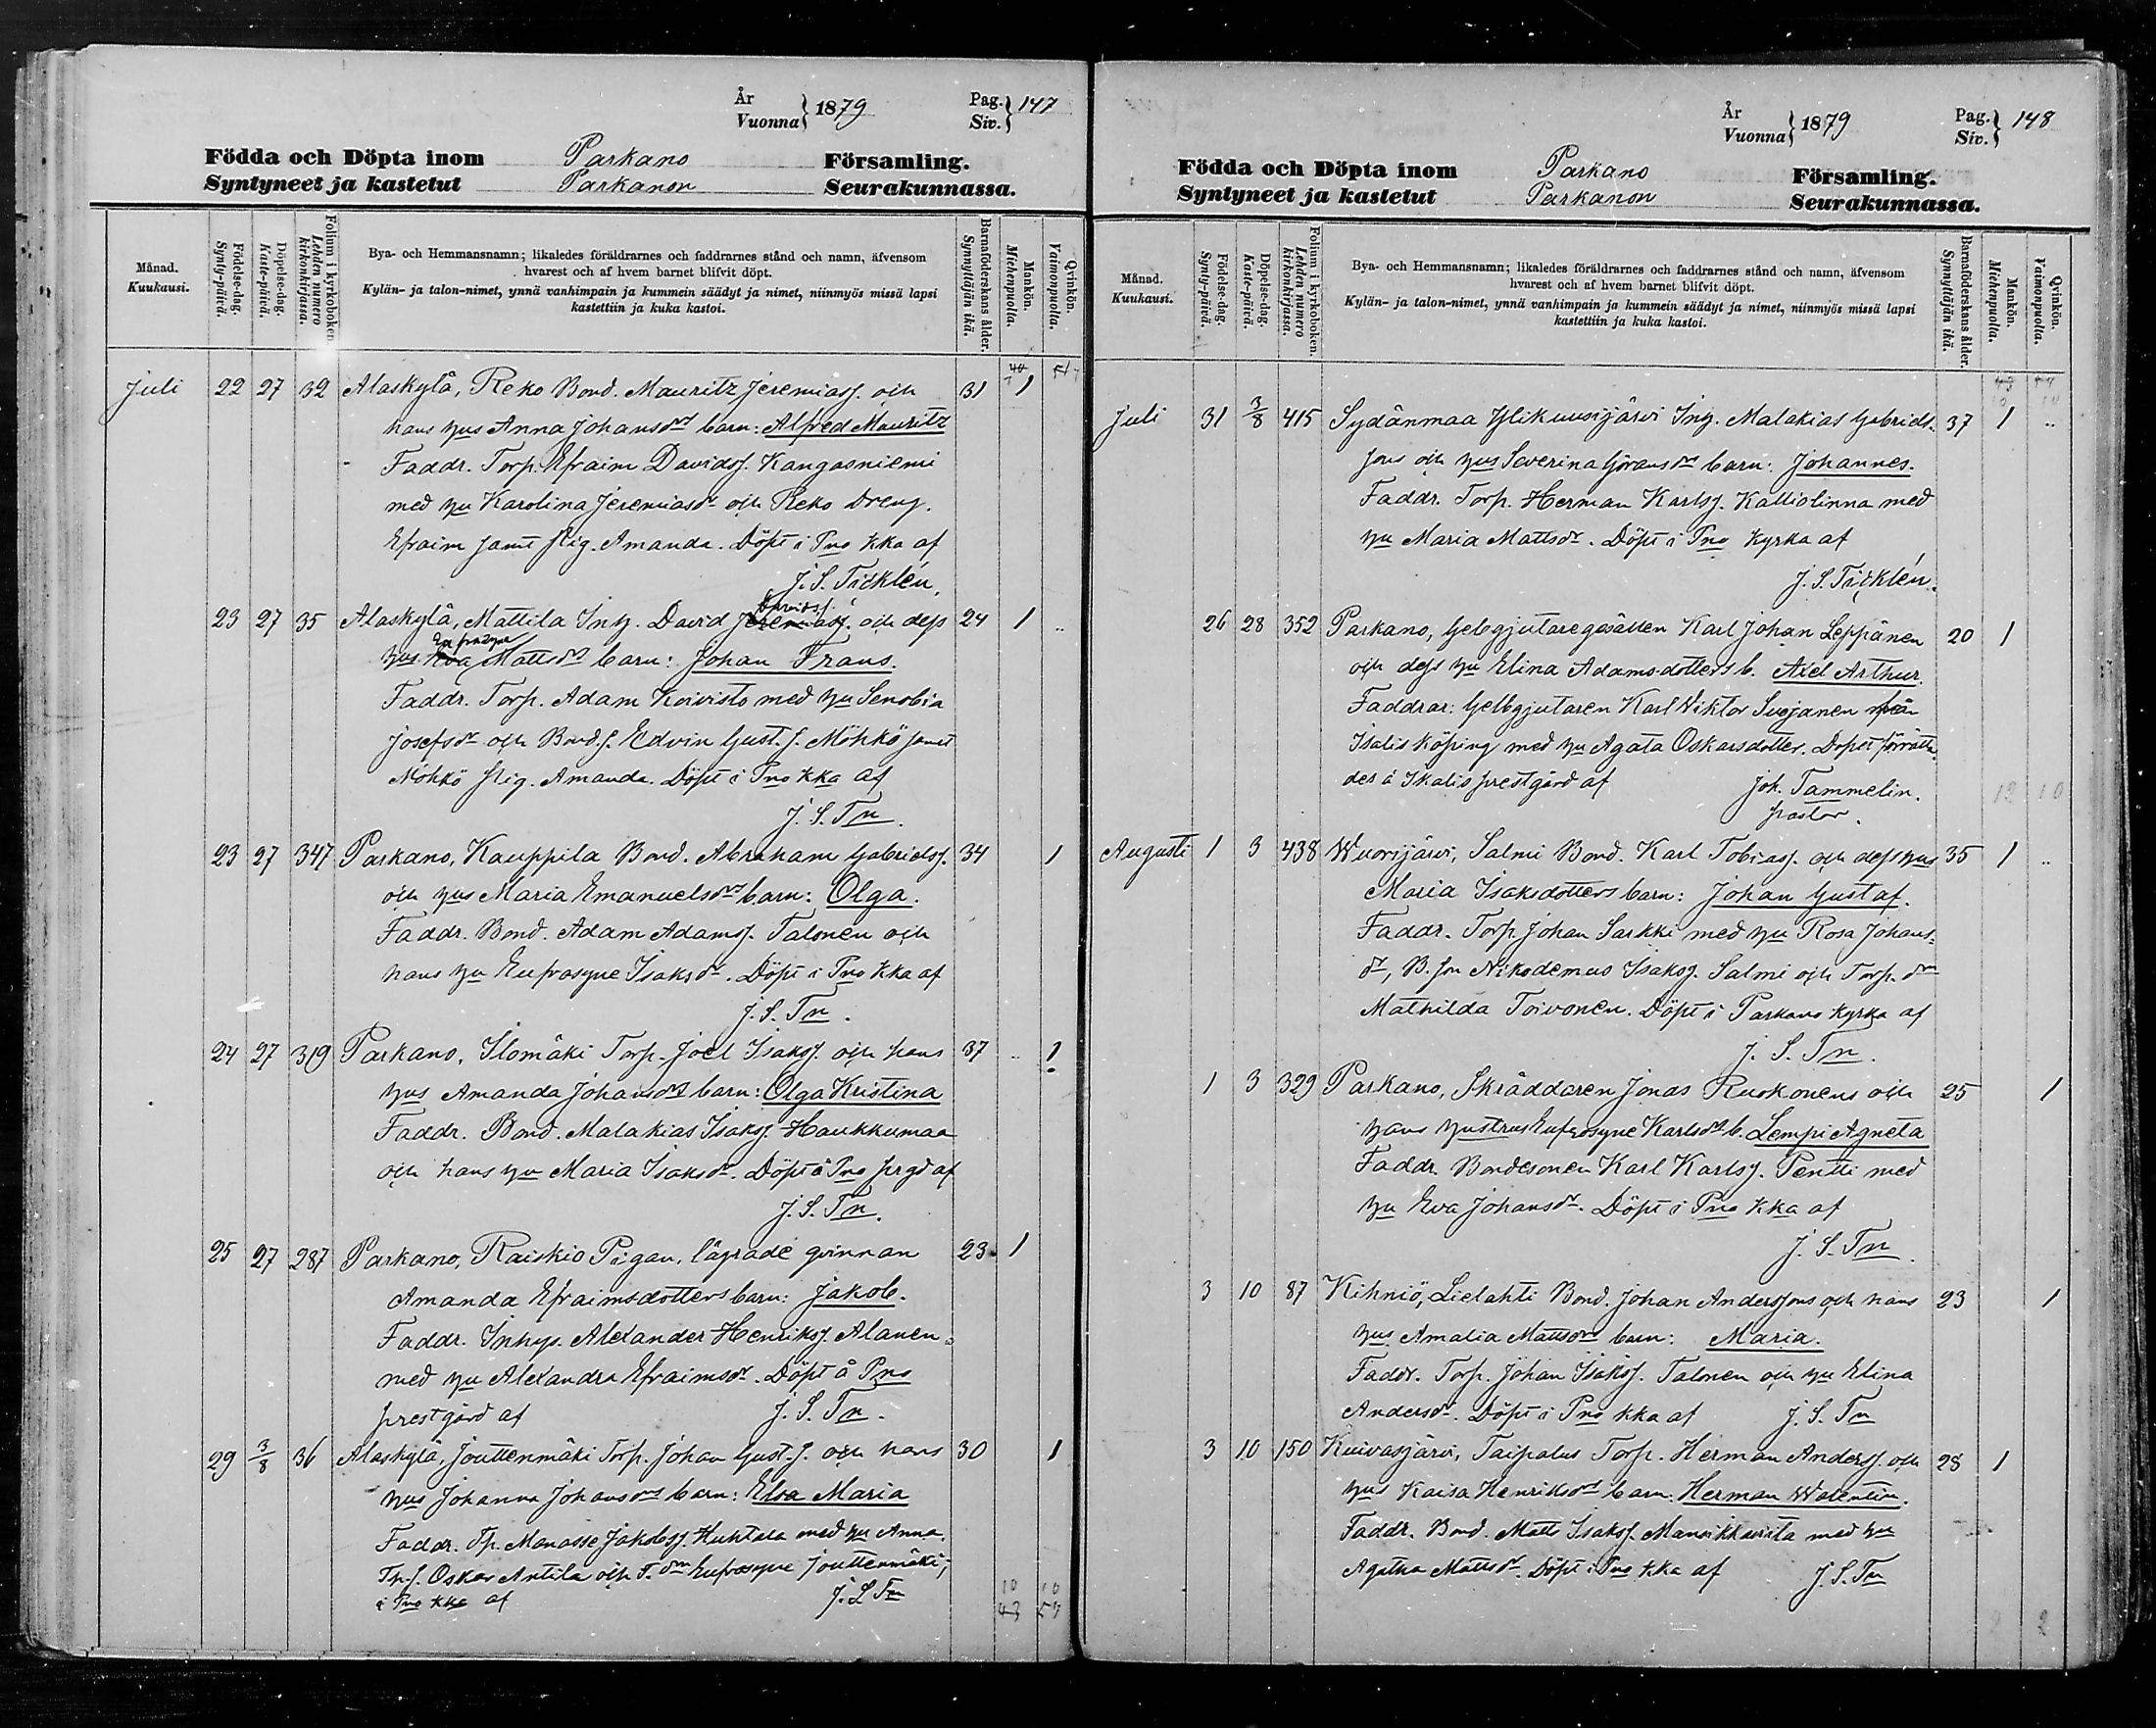 År
Vuonna } 1879
Pag.
Siv. } 147
Födda och Döpta inom Parkano Församling.
Syntyneet ja kastetut Parkanon Seurakunnassa.
Månad.
Kuukausi.
Födelse-dag.
Synty-päivä.
Döpelse-dag.
Kaste-päivä.
Folium i kyrkoboken.
Lehden numero kirkonkirjassa.
Bya- och Hemmansnamn; likaledes föräldrarnes och faddrarnes stånd och namn, äfvensom
hvarest och af hvem barnet blifvit döpt.
Kylän- ja talon-nimet, ynnä vanhimpain ja kummein säädyt ja nimet, niinmyös missä lapsi
kastettiin ja kuka kastoi.
Barnaföderskans ålder.
Synnyttäjän ikä.
Mankön.
Miehenpuolia.
Qvinkön.
Vaimonpuolia.
Juli 22 27 32 Alaskylä, Reko Bond. Mauritz Jeremiass. och 31 1
hans hus Anna Johansdrs barn: Alfred Mauritz
Faddr. Torp. Efraim Davidss. Kangasniemi
med hu Karolina Jeremiasdr och Reko Dreng.
Efraim samt pig. Amanda. Döpt i Pno kka af
J. S. Täcklén.
23 27 35 Alaskylä, Mattila Inh. David Jeremiass. Davidss. och dess 24 1
hus Eva Eufrosyne Mattsdrs barn: Johan Frans.
Faddr. Torp. Adam Koivisto med hu Senobia
Josefsdr och Bond.s. Edvin Gust.s. Möhkö samt
Möhkö pig. Amanda. Döpt i Pno kka af
J. S. Tn.
23 27 347 Parkano, Kauppila Bond. Abraham Gabrielss. 34 1
och hus Maria Emanuelsdrs barn: Olga.
Faddr. Bond. Adam Adamss. Talonen och
hans hu Eufrosyne Isaksdr. Döpt i Pno kka af
J. S. Tn.
24 27 319 Parkano, Ilomäki Torp. Joel Isakss. och hans 37 1
hus Amanda Johansdrs barn: Olga Kristina
Faddr. Bond. Malakias Isakss. Haukkumaa
och hans hu Maria Isaksdr. Döpt å Pno prgd af
J. S. Tn.
25 27 287 Parkano, Raiskio Pigan, lägrade qvinnan 23 1
Amanda Efraimsdotters barn: Jakob.
Faddr. Inhys. Alexander Henrikss. Alanen
med hu Alexandra Efraimsdr. Döpt å Pno
prestgård af J. S. Tn.
29 3/8 36 Alaskylä, Jouttenmäki Torp. Johan Gust.s. och hans 30 1
hus Johanna Johansdrs barn: Elsa Maria
Faddr. Tp. Manasse Jakobss. Huhtala med hu Anna,
Tp.s. Oskar Antila och T. dn Eufrosyne Jouttenmäki;
i Pno kka af J. S. Tn
10 10
43 57
År
Vuonna } 1879
Pag.
Siv. } 148
Födda och Döpta inom Parkano Församling.
Syntyneet ja kastetut Parkanon Seurakunnassa.
Månad.
Kuukausi.
Födelse-dag.
Synty-päivä.
Döpelse-dag.
Kaste-päivä.
Folium i kyrkoboken.
Lehden numero kirkonkirjassa.
Bya- och Hemmansnamn; likaledes föräldrarnes och faddrarnes stånd och namn, äfvensom
hvarest och af hvem barnet blifvit döpt.
Kylän- ja talon-nimet, ynnä vanhimpain ja kummein säädyt ja nimet, niinmyös missä lapsi
kastettiin ja kuka kastoi.
Barnaföderskans ålder.
Synnyttäjän ikä.
Mankön.
Miehenpuolia.
Qvinkön.
Vaimonpuolia.
Juli 31 3/8 415 Sydänmaa Ylikuusijärvi Inh. Malakias Gabriels- 37 1
sons och hus Severina Göransdrs barn: Johannes.
Faddr. Torp. Herman Karlss. Kalliolinna med
hu Maria Mattsdr. Döpt i Pno kyrka af
J. S. Täcklén.
26 28 352 Parkano, Gelbgjutaregesällen Karl Johan Leppänen 20 1
och dess hu Elina Adamsdotters b. Axel Arthur.
Faddrar: Gelbgjutaren Karl Wiktor Suojanen från
Ikalis köping med hu Agata Oskarsdotter. Dopet förrätta-
des å Ikalis prestgård af Joh. Tammelin.
pastor.
12 10
Augusti 1 3 438 Wuorijärvi, Salmi Bond. Karl Tobiass. och dess hus 35 1
Maria Isaksdotters barn: Johan Gustaf.
Faddr. Torp. Johan Sarkki med hu Rosa Johans-
dr, B. son Nikodemus Isakss. Salmi och Torp. dn
Mathilda Toivonen. Döpt i Parkano kyrka af
J. S. Tn.
1 3 329 Parkano, Skräddaren Jonas Ruokonens och 25 1
hans hustrus Eufrosyne Karlsdrs b. Lempi Agneta
Faddr. Bondesonen Karl Karlss. Pentti med
hu Eva Johansdr. Döpt i Pno kka af
J. S. Tn.
3 10 87 Kihniö, Lielahti Bond. Johan Anderssons och hans 23 1
hus Amalia Mattsdrs barn: Maria.
Faddr. Torp. Johan Isakss. Talonen och hu Elina
Andersdr. Döpt i Pno kka af J. S. Tn
3 10 150 Kuivasjärvi, Taipalus Torp. Herman Anderss. och 28 1
hus Kaisa Henriksdrs barn: Herman Walentin.
Faddr. Bond. Matts Isakss. Mansikkaviita med hu
Agatha Mattsdr. Döpt i Pno kka af J. S. Tn
2